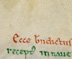 Ecce bndictus
recepit in naue